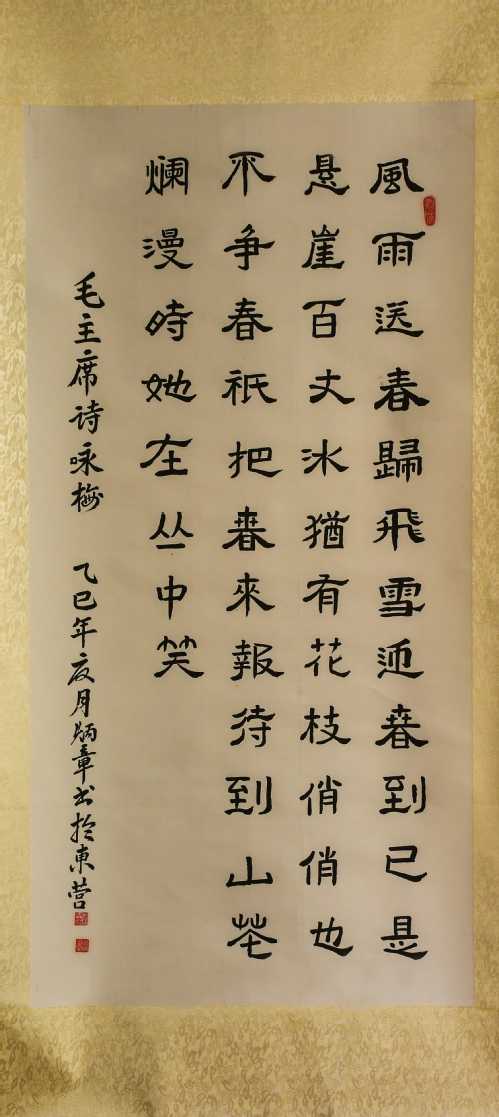 風雨送春歸飛雪迎春到已是
悬崖百丈冰猶有花枝俏俏也
不争春祇把春來報待到山花
爛漫時她在丛中笑
毛主席诗咏梅 乙巳年夏月炳章书於東营